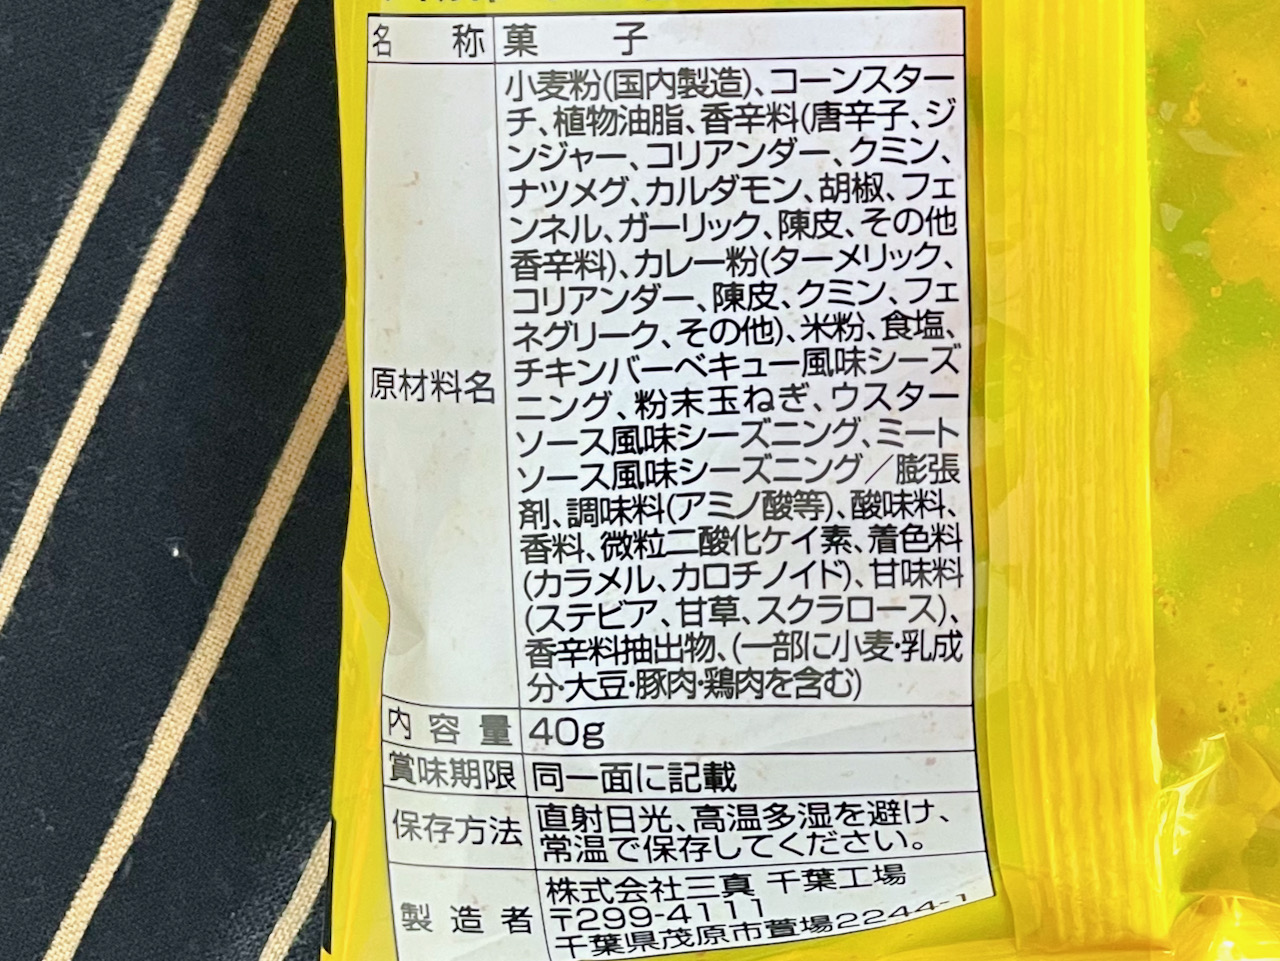 名称 菓子
原材料名
小麦粉(国内製造)、コーンスター
チ、植物油脂、香辛料(唐辛子、ジ
ンジャー、コリアンダー、クミン、
ナツメグ、カルダモン、胡椒、フェ
ンネル、ガーリック、陳皮、その他
香辛料)、カレー粉(ターメリック、
コリアンダー、陳皮、クミン、フェ
ネグリーク、その他)、米粉、食塩、
チキンバーベキュー風味シーズ
ニング、粉末玉ねぎ、ウスター
ソース風味シーズニング、ミート
ソース風味シーズニング／膨張
剤、調味料(アミノ酸等)、酸味料、
香料、微粒二酸化ケイ素、着色料
(カラメル、カロチノイド)、甘味料
(ステビア、甘草、スクラロース)、
香辛料抽出物、(一部に小麦・乳成
分・大豆・豚肉・鶏肉を含む)
内容量 40g
賞味期限 同一面に記載
保存方法
直射日光、高温多湿を避け、
常温で保存してください。
製造者
株式会社三真 千葉工場
〒299-4111
千葉県茂原市萱場2244-1